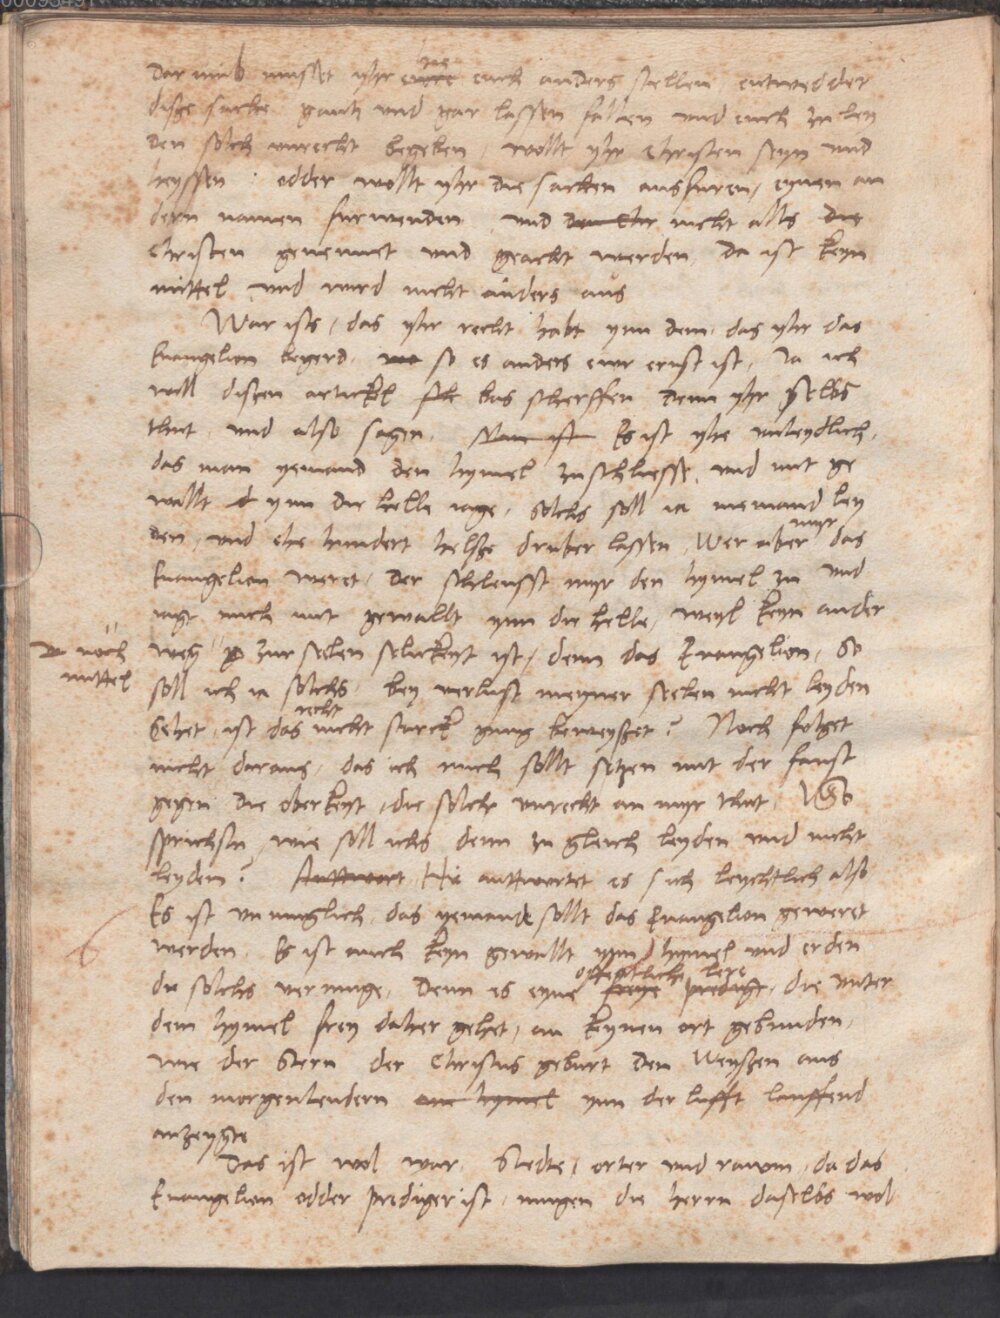 Dar umb musset yhr euch anders stellen, entwedder
disze sache gantz und gar lassen fallen und euch zu ley
den solch unrecht begeben, wollt yhr Christen seyn und
heyssen, odder wollt yhr die sachen ausfuren, eynen an
dern namen furwenden und nicht alls die
Christen genennet und geacht werden, Da ist keyn
mittel und wird nicht anders aus
War ists, das yhr recht habt ynn dem, das yhr das
Euangelion begerd, so es anders ewr ernst ist, Ja ich
will diszen artickel bas scherffen denn yhr selbs
thut, und also sagen, Es ist yhe unleydlich,
das man yemand den hymel zuschliesse, und mit ge
wallt ynn die helle iage, solchs soll ia niemand ley
den, und ehe hundert helsze druber lassen, Wer aber myr das
Euangelion weret, der schleusst myr den hymel zu und
iagt mich mit gewallt ynn die helle, weyl keyn ander
weg noch mittel zur seelen selickeyt ist, denn das Euangelion, So
soll ich ia solchs, bey verlust meyner seelen nicht leyden
Sihet, ist das recht nicht starck gnug beweyszet? Noch folget
nicht daraus, das ich mich sollt setzen mit der faust
gegen die oberkeyt, die solch unrecht an myr thut, So
sprichstu, wie soll ichs denn zu gleich leyden und nicht
leyden? Hie anttwortet es sich leychtlich also
Es ist unmuglich, das yemand sollt das Euangelion geweret
werden, Es ist auch keyn gewallt ynn hymel und erden
die solchs vermuge, Denn es eyne offentliche lere, die unter
dem hymel frey daher gehet, an keynen ort gebunden,
wie der Stern der Christus geburt den Weyszen aus
den morgenlendern ynn der lufft lauffend
anzeygte
Das ist wol war, Stedte, orter und rawm, da das
Euangelion odder prediger ist, mugen die herrn daselbs wol